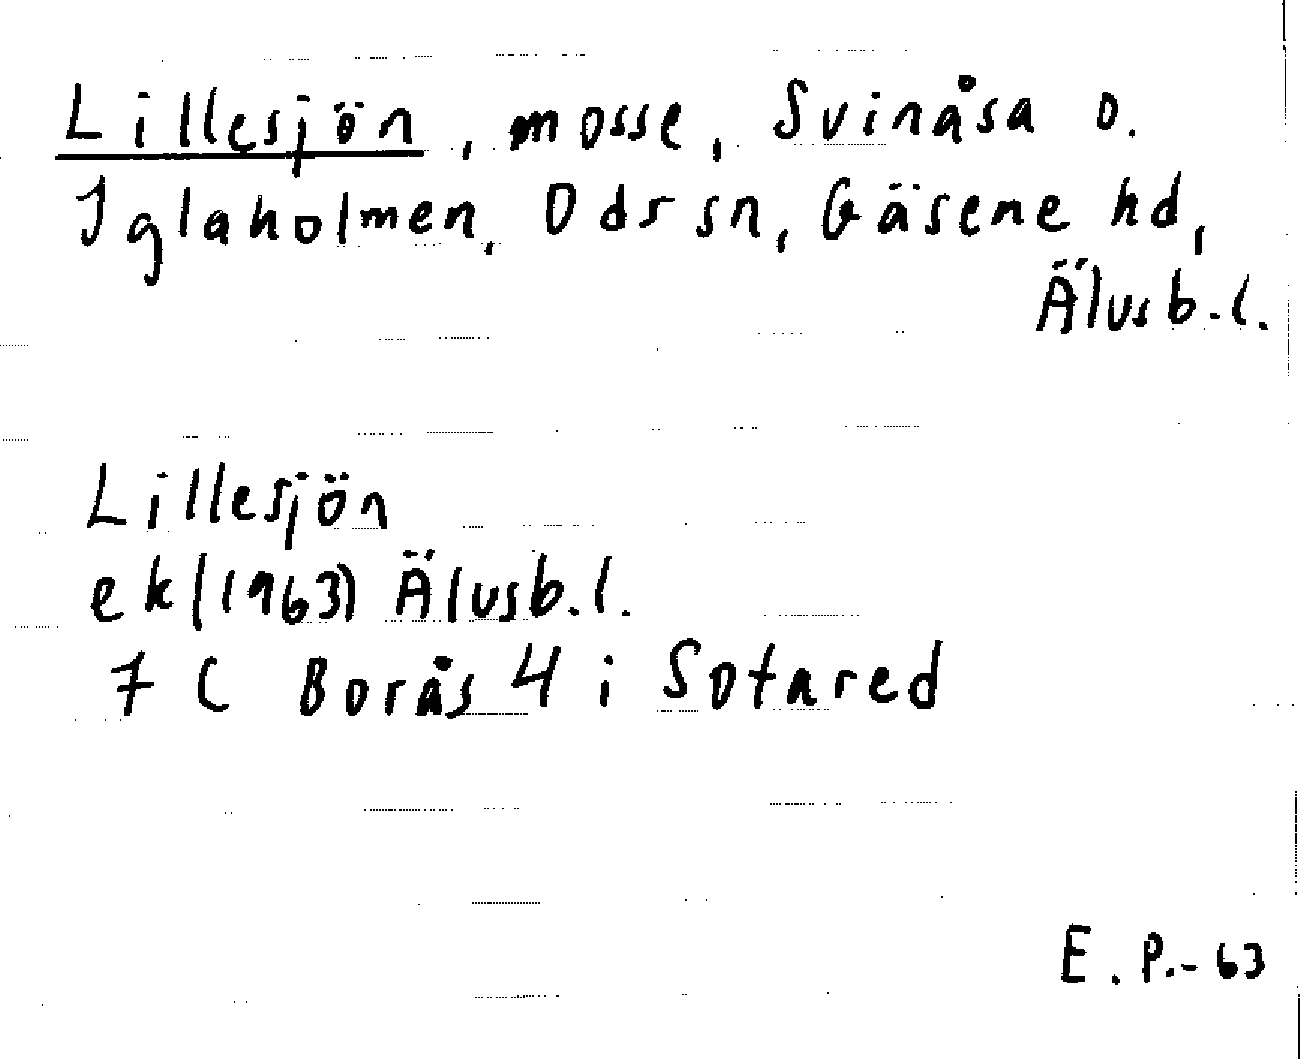 Lillesjön, mosse, Svinåsa o.
Iglaholmen, Ods sn, Gäsene hd,
Älvsb.l.
Lillesjön
ek (1963) Älvsb.l.
7 C Borås 4 i Sotared
E.P.-63